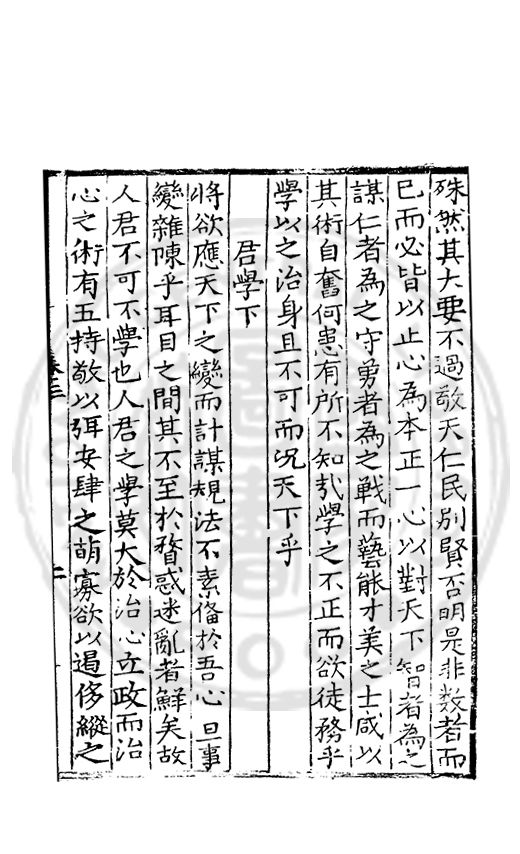 殊然其大要不過敬天仁民別賢否明是非数者而
已而必皆以止心為本正一心以對天下智者為之
謀仁者為之守勇者為之戰而藝能才美之士咸以
其術自奮何患有所不知㢤學之不正而欲徒務乎
學以之治身且不可而况天下乎
君學下
將欲應天下之變而計謀規法不素俻於吾心旦事
變雜陳乎耳目之間其不至於瞀惑迷亂者鮮矣故
人君不可不學也人君之學莫大於治心立政而治
心之術有五持敬以弭安肆之萌寡欲以遏侈縱之
卷三
二